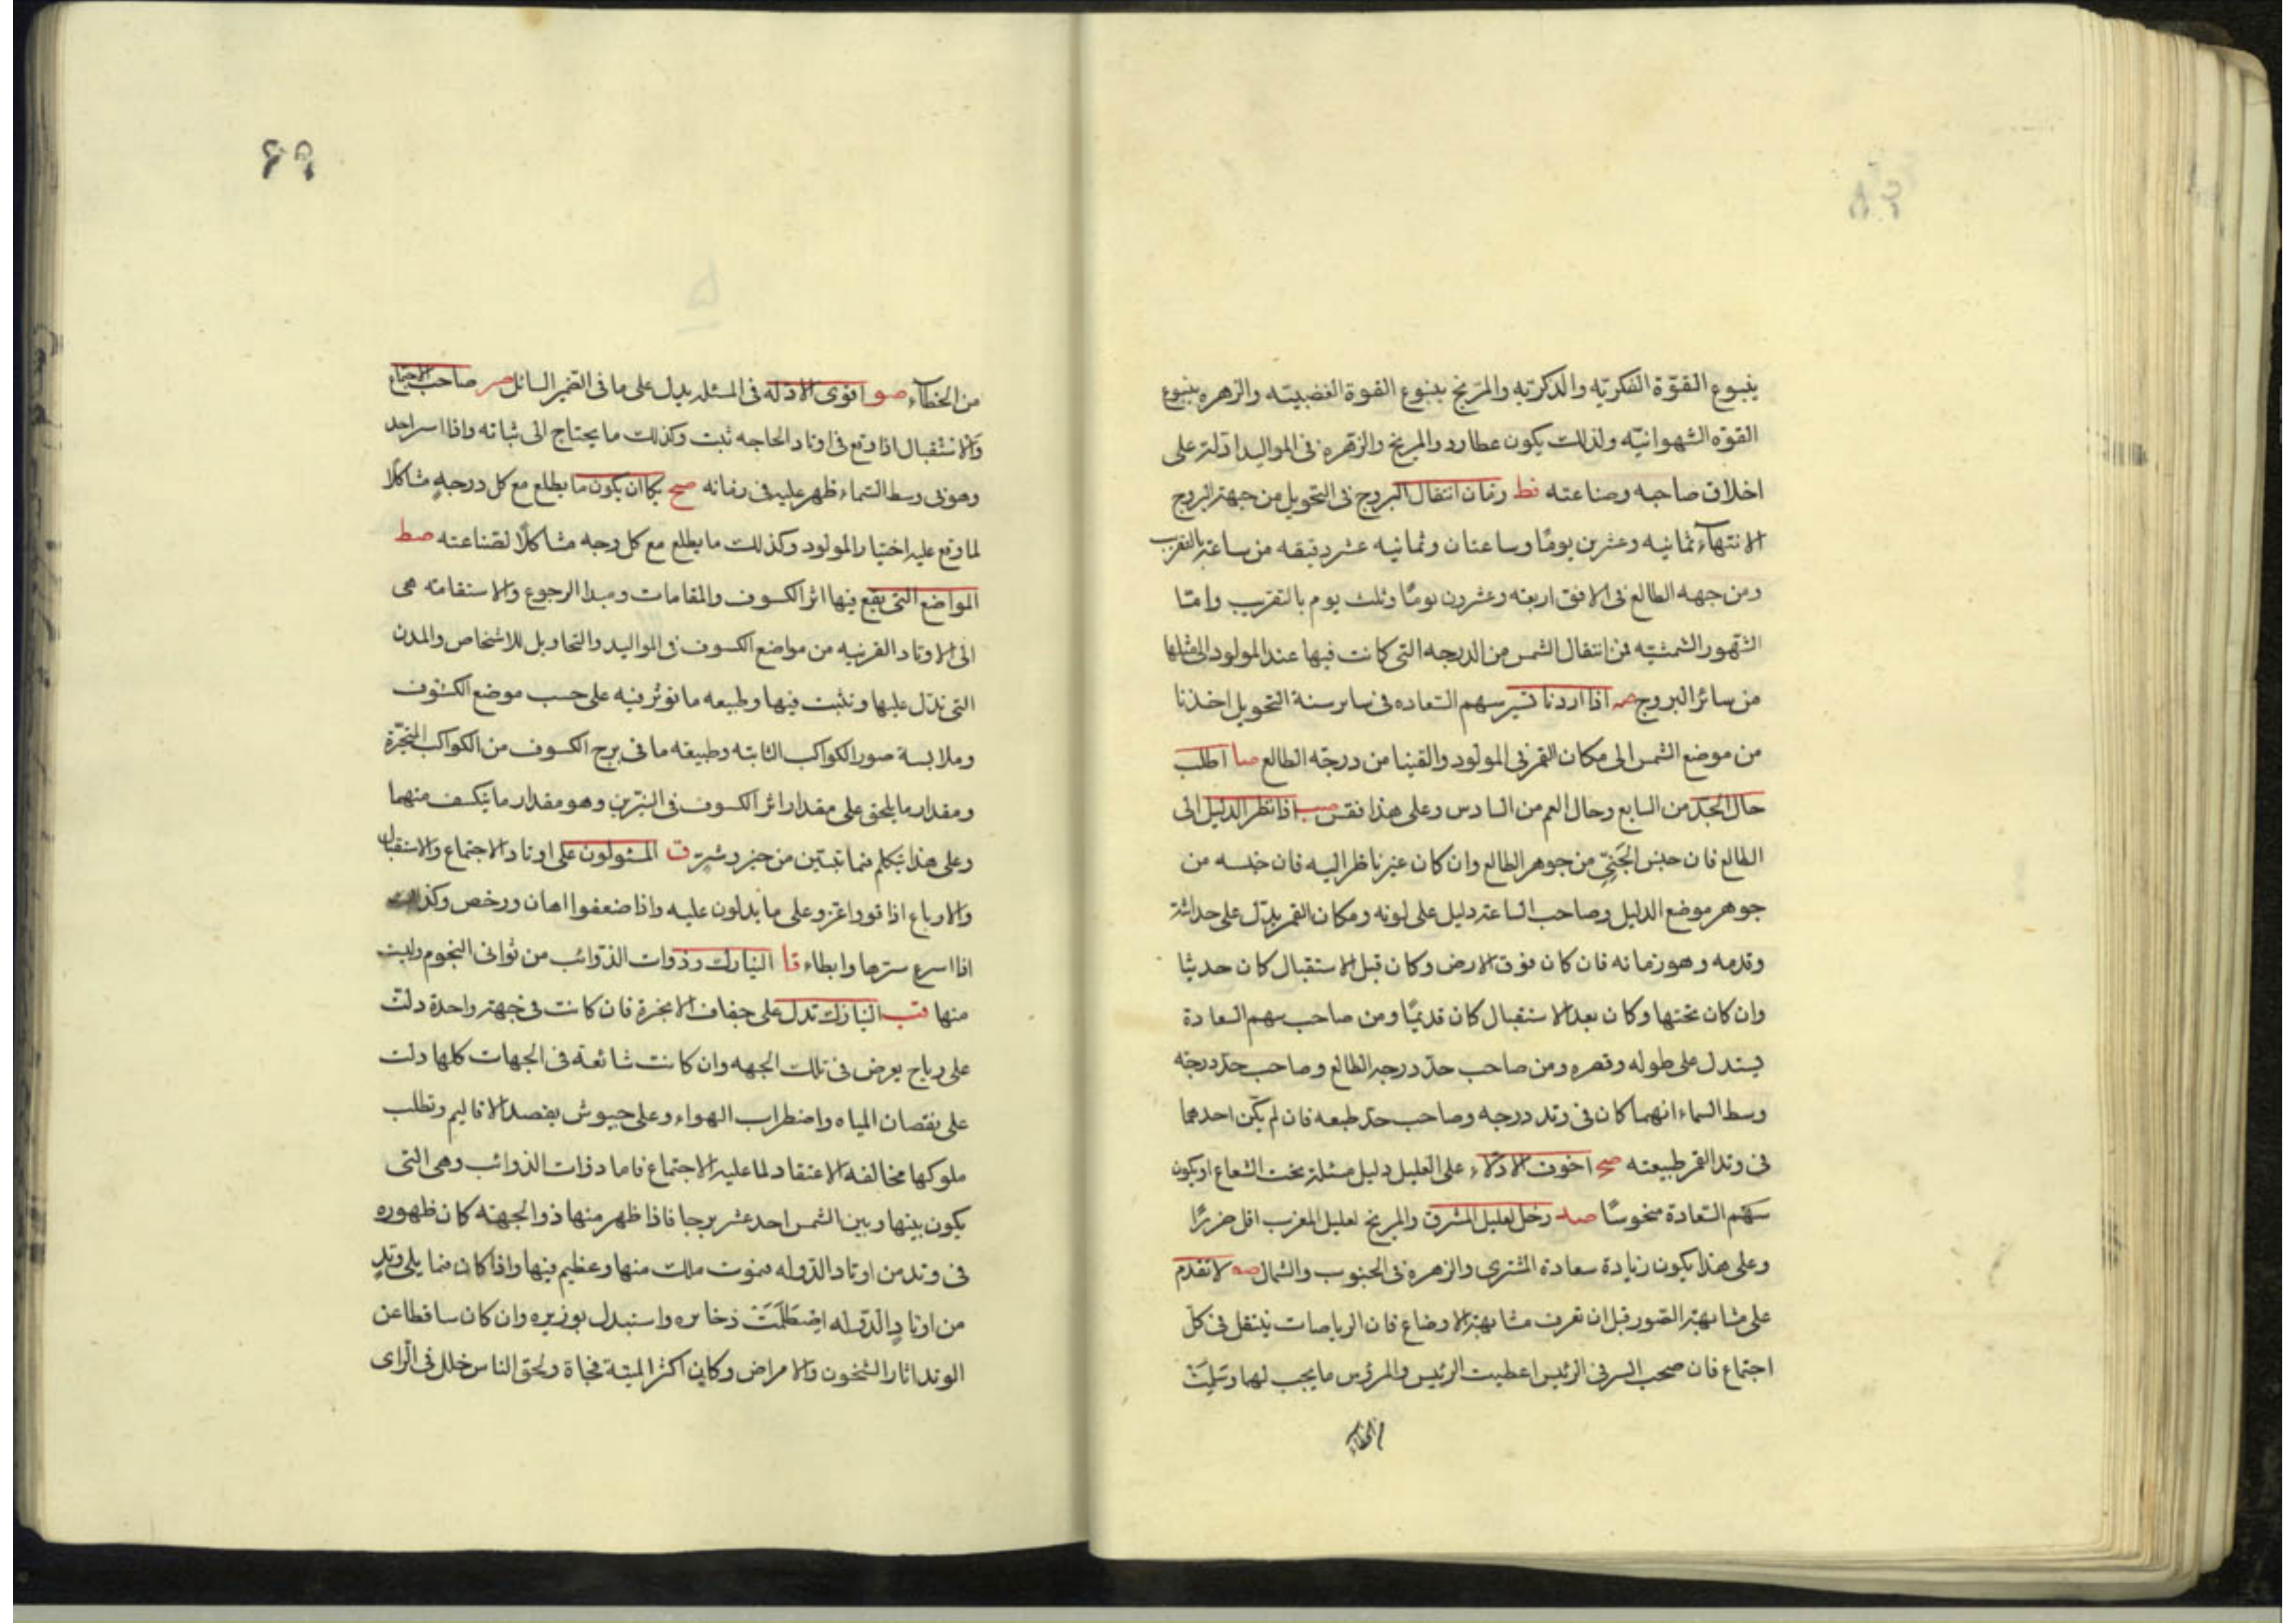 ينبوع القوّة الفكريّه والذكريّه والمرّيخ ينبوع القوة الغضبيّه والزهره ينبوع
القوّه الشهوانيّه ولذلك يكون عطارد والمريخ والزهره فى المواليد ادلة على
اخلاق صاحبه وصناعته فط زمان انتقال البروج فى التحويل من جهة البرج
الانتهآء ثمانيه وعشرين يومًا وساعتان وثمانيه عشر دقيقه من ساعة بالتقرب
ومن جهه الطالع فى الافق اربعه وعشرون يومًا وثلث يوم بالتقريب وامّا
الشهور الشمسيّه فمن انتقال الشمس من الدرجه التى كانت فيها عند المولود الى مثلها
من سائر البروج صه اذا اردنا تسير سهم السّعاده فى ساير سنة التحويل اخذنا
من موضع الشمس الى مكان القمر فى المولود والقينا من درجة الطالع صا اطلب
حال الجدّ من السابع وحال العم من السادس وعلى هذا فقس صب اذا نظر الدليل الى
الطالع فان جنس الخَبِىّ من جوهر الطالع وان كان غير ناظر اليه فان جنسه من
جوهر موضع الدليل وصاحب الساعة دليل على لونه ومكان القمر يدّل على حداثة
وقدمه وهو زمانه فان كان فوق الارض وكان قبل الاستقبال كان حديثا
وان كان تحتها وكان بعد الاستقبال كان قديمًا ومن صاحب سهم السعادة
يستدل على طوله وقصره ومن صاحب حدّ درجه الطالع وصاحب حدّ درجة
وسط السماء انهما كان فى وتد درجه وصاحب حدّ طبعه فان لم يكن احدهما
فى وتد القمر طبيعته صح اخوف الادلاّء على العليل دليل مسئلة تحت الشعاع او يكون
سهم السّعادة منحوسًا صد زحل لعليل المشرق والمريخ لعليل المغرب اقل ضررًا
وعلى هذا يكون زيادة سعادة المشترى والزهره فى الجنوب والشمال صه لا تقدم
على مشابهة الصّور قبل ان تعرف مشابهة الاوضاع فان الرياصات ينتقل فى كل
اجتماع فان صحب السر فى الرئيس اعطيت الرئيس والمرؤس ما يجب لهما وسَلِمَتْ
من الخطآء
۶۹
من الخطآء صو اقوى الادلّه فى المسئله يدل على ما فى الضمير السائل صر صاحب الاجتماع
والاستقبال اذا وقع فى اوتاد الحاجه ثبت وكذلك ما يحتاج الى ثباته واذا اسر احد
وهو فى وسط السّماء ظهر عليه فى زمانه صح كما ان يكون ما يطلع مع كل درجهٍ مشاكلًا
لما وقع عليه اختيار المولود وكذلك ما يطلع مع كل وجه مشاكلًا لصناعته صط
المواضع التى يقع فيها اثر الكسوف والمقامات ومبدا الرجوع والاستقامه هى
الى الاوتاد القريبه من مواضع الكسوف فى المواليد والتحاويل للاشخاص والمدن
التى تدّل عليها وتثبت فيها وطبيعه ما توثر فيه على حسب موضع الكسوف
وملابسة صور الكواكب الثابته وطبيعه ما فى برج الكسوف من الكواكب المتحيّرة
ومقدار ما يلحق على مقدار اثر الكسوف فى النيّرين وهو مقدار ما ينكسف منهما
وعلى هذا تتكلم فيما تبتين من خير وشرّ ق المسئولون على اوتاد الاجتماع والاستقبال
والارباع اذا قووا عزّو على ما يدلون عليه واذا ضعفوا اهان ورخص وكذلك
اذا اسرع سيرها وابطاء قا النيازك وذوات الذوائب من ثوانى النجوم وليست
منها قب النيازك تدل على جفاف الابخرة فان كانت فى جهة واحدة دلّت
على رياح يعرض فى تلك الجهه وان كانت شائعة فى الجهات كلها دلت
على نقصان المياه واضطراب الهواء وعلى جيوش يقصد الاقاليم وتطلب
ملوكها مخالفه الاعتقاد لما عليه الاجتماع فاما ذوات الذوائب وهى التى
يكون بينها وبين الشمس احد عشر برجا فاذا ظهر منها ذو الجهته كان ظهوره
فى وتد من اوتاد الدّوله فموت ملك منها وعظيم فيها واذا كان فيما يلى وتدٍ
من اوتادِ الدّوله ذخايره واستبدل بوزيره وان كان ساقطا عن
الوتد اثار الشخون والامراض وكاين اكثر الميتة فجاة ولحق الناس خلل فى الرّاى